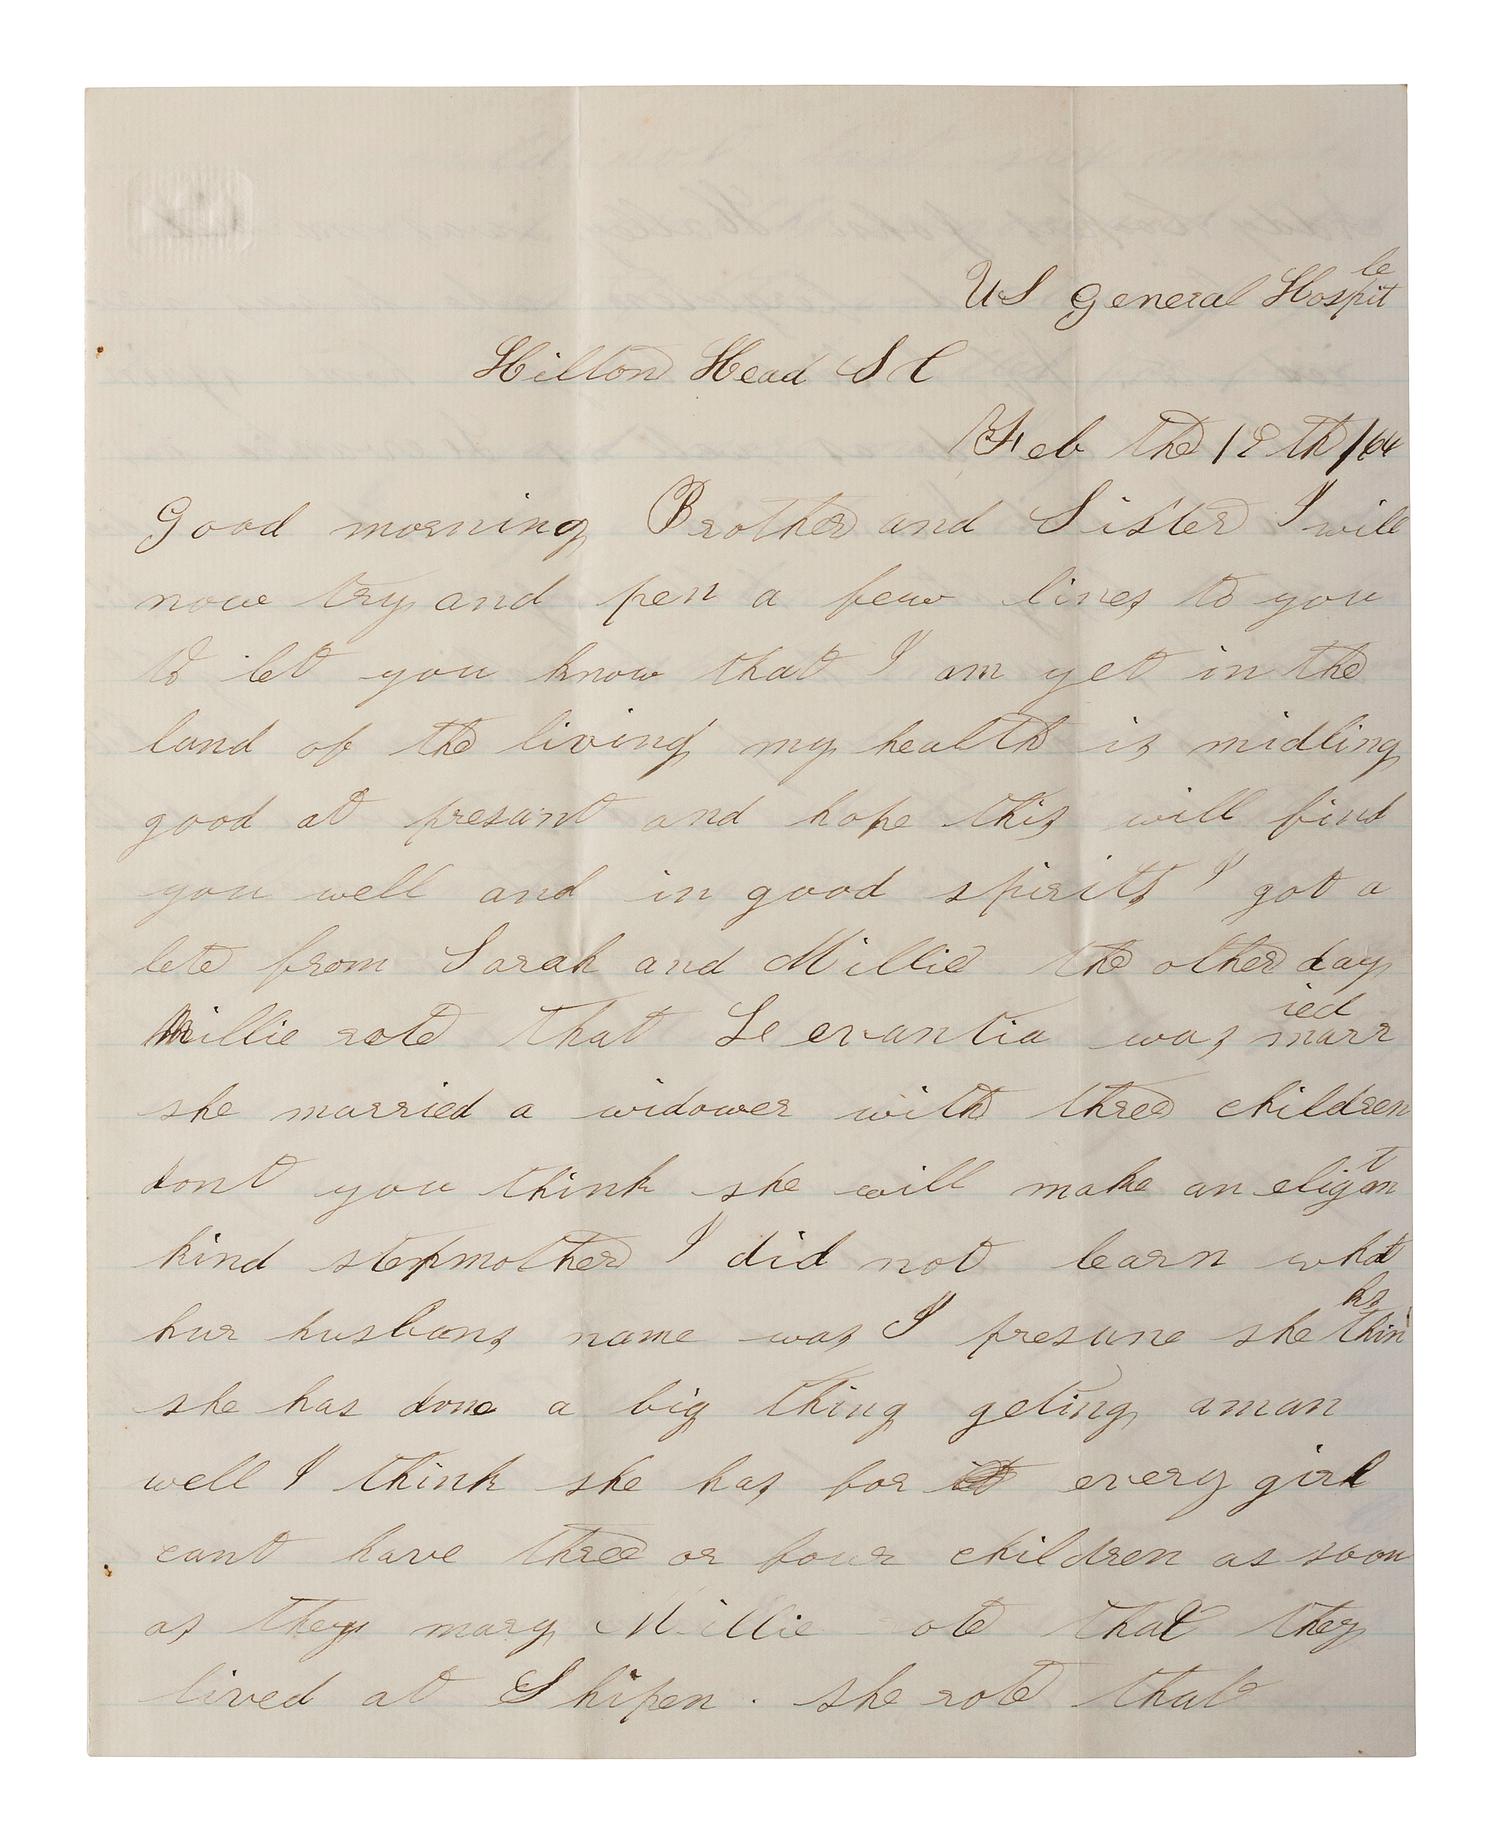 US General Hospitle
Hilton Head S C
Feb the 19th /64
Good morning Brother and Sister I will
now try and pen a few lines to you
to let you know that I am yet in the
land of the living my health is midling
good at presant and hope this will find
you well and in good spirits I got a
lete from Sarah and Millie the other day
Millie rote that Levantia was married
she married a widower with three children
dont you think she will make an
kind stepmother I did not learn what
hur husbans name was I presume she thinks
she has done a big thing geting a man
well I think she has for every girl
cant have three or four children as soon
as they mary Millie rote that they
lived at Shipen. she rote that